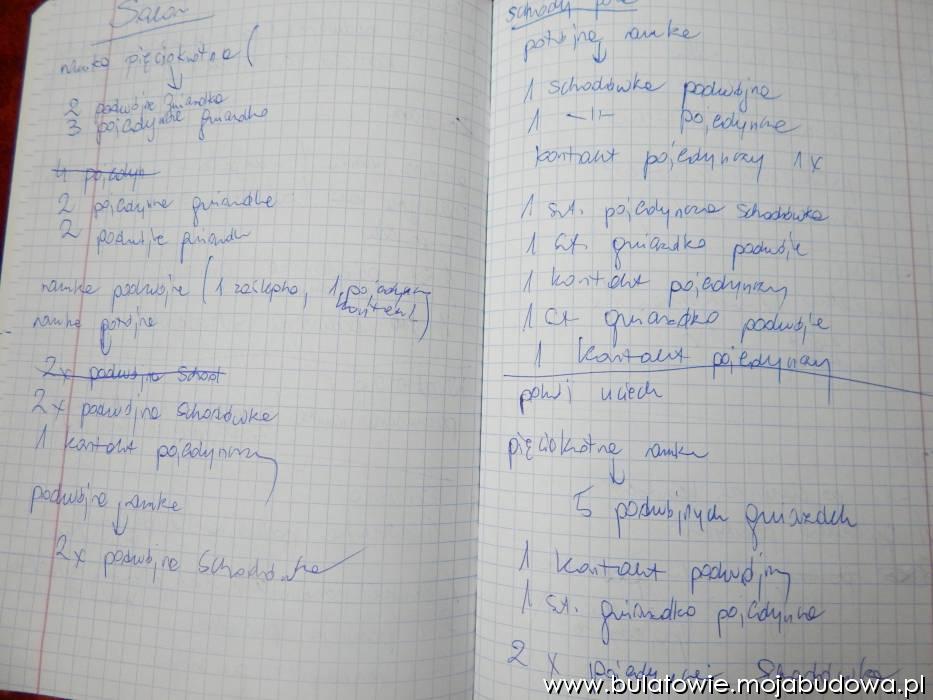 Salon
ramka pięciokrotna (
2 podwójne gniazdka
3 pojedyncze gniazdka
4 pojedyn
2 pojedyncze gniazdka
2 podwójne gniazdka
ramka podwójne (1 zaślepka, 1 pojedynczy
kontakt)
ramka potrójne
2x podwójna Schod
2x podwójna Schodówka
1 kontakt pojedynczy
podwójne ramka
2x podwójna Schodówka
schody
potrójna ramka
1 Schodówka podwójna
1 -||- pojedyncza
kontakt pojedynczy 1x
1 szt. pojedyncza schodówka
1 szt. gniazdko podwójne
1 kontakt pojedynczy
1 szt gniazdko podwójne
1 kontakt pojedynczy
pokój uciech
pięciokrotna ramka
5 podwójnych gniazdek
1 kontakt podwójny
1 szt. gniazdko pojedyncze
2 x pojedynczej Schodówka
www.bulatowie.mojabudowa.pl